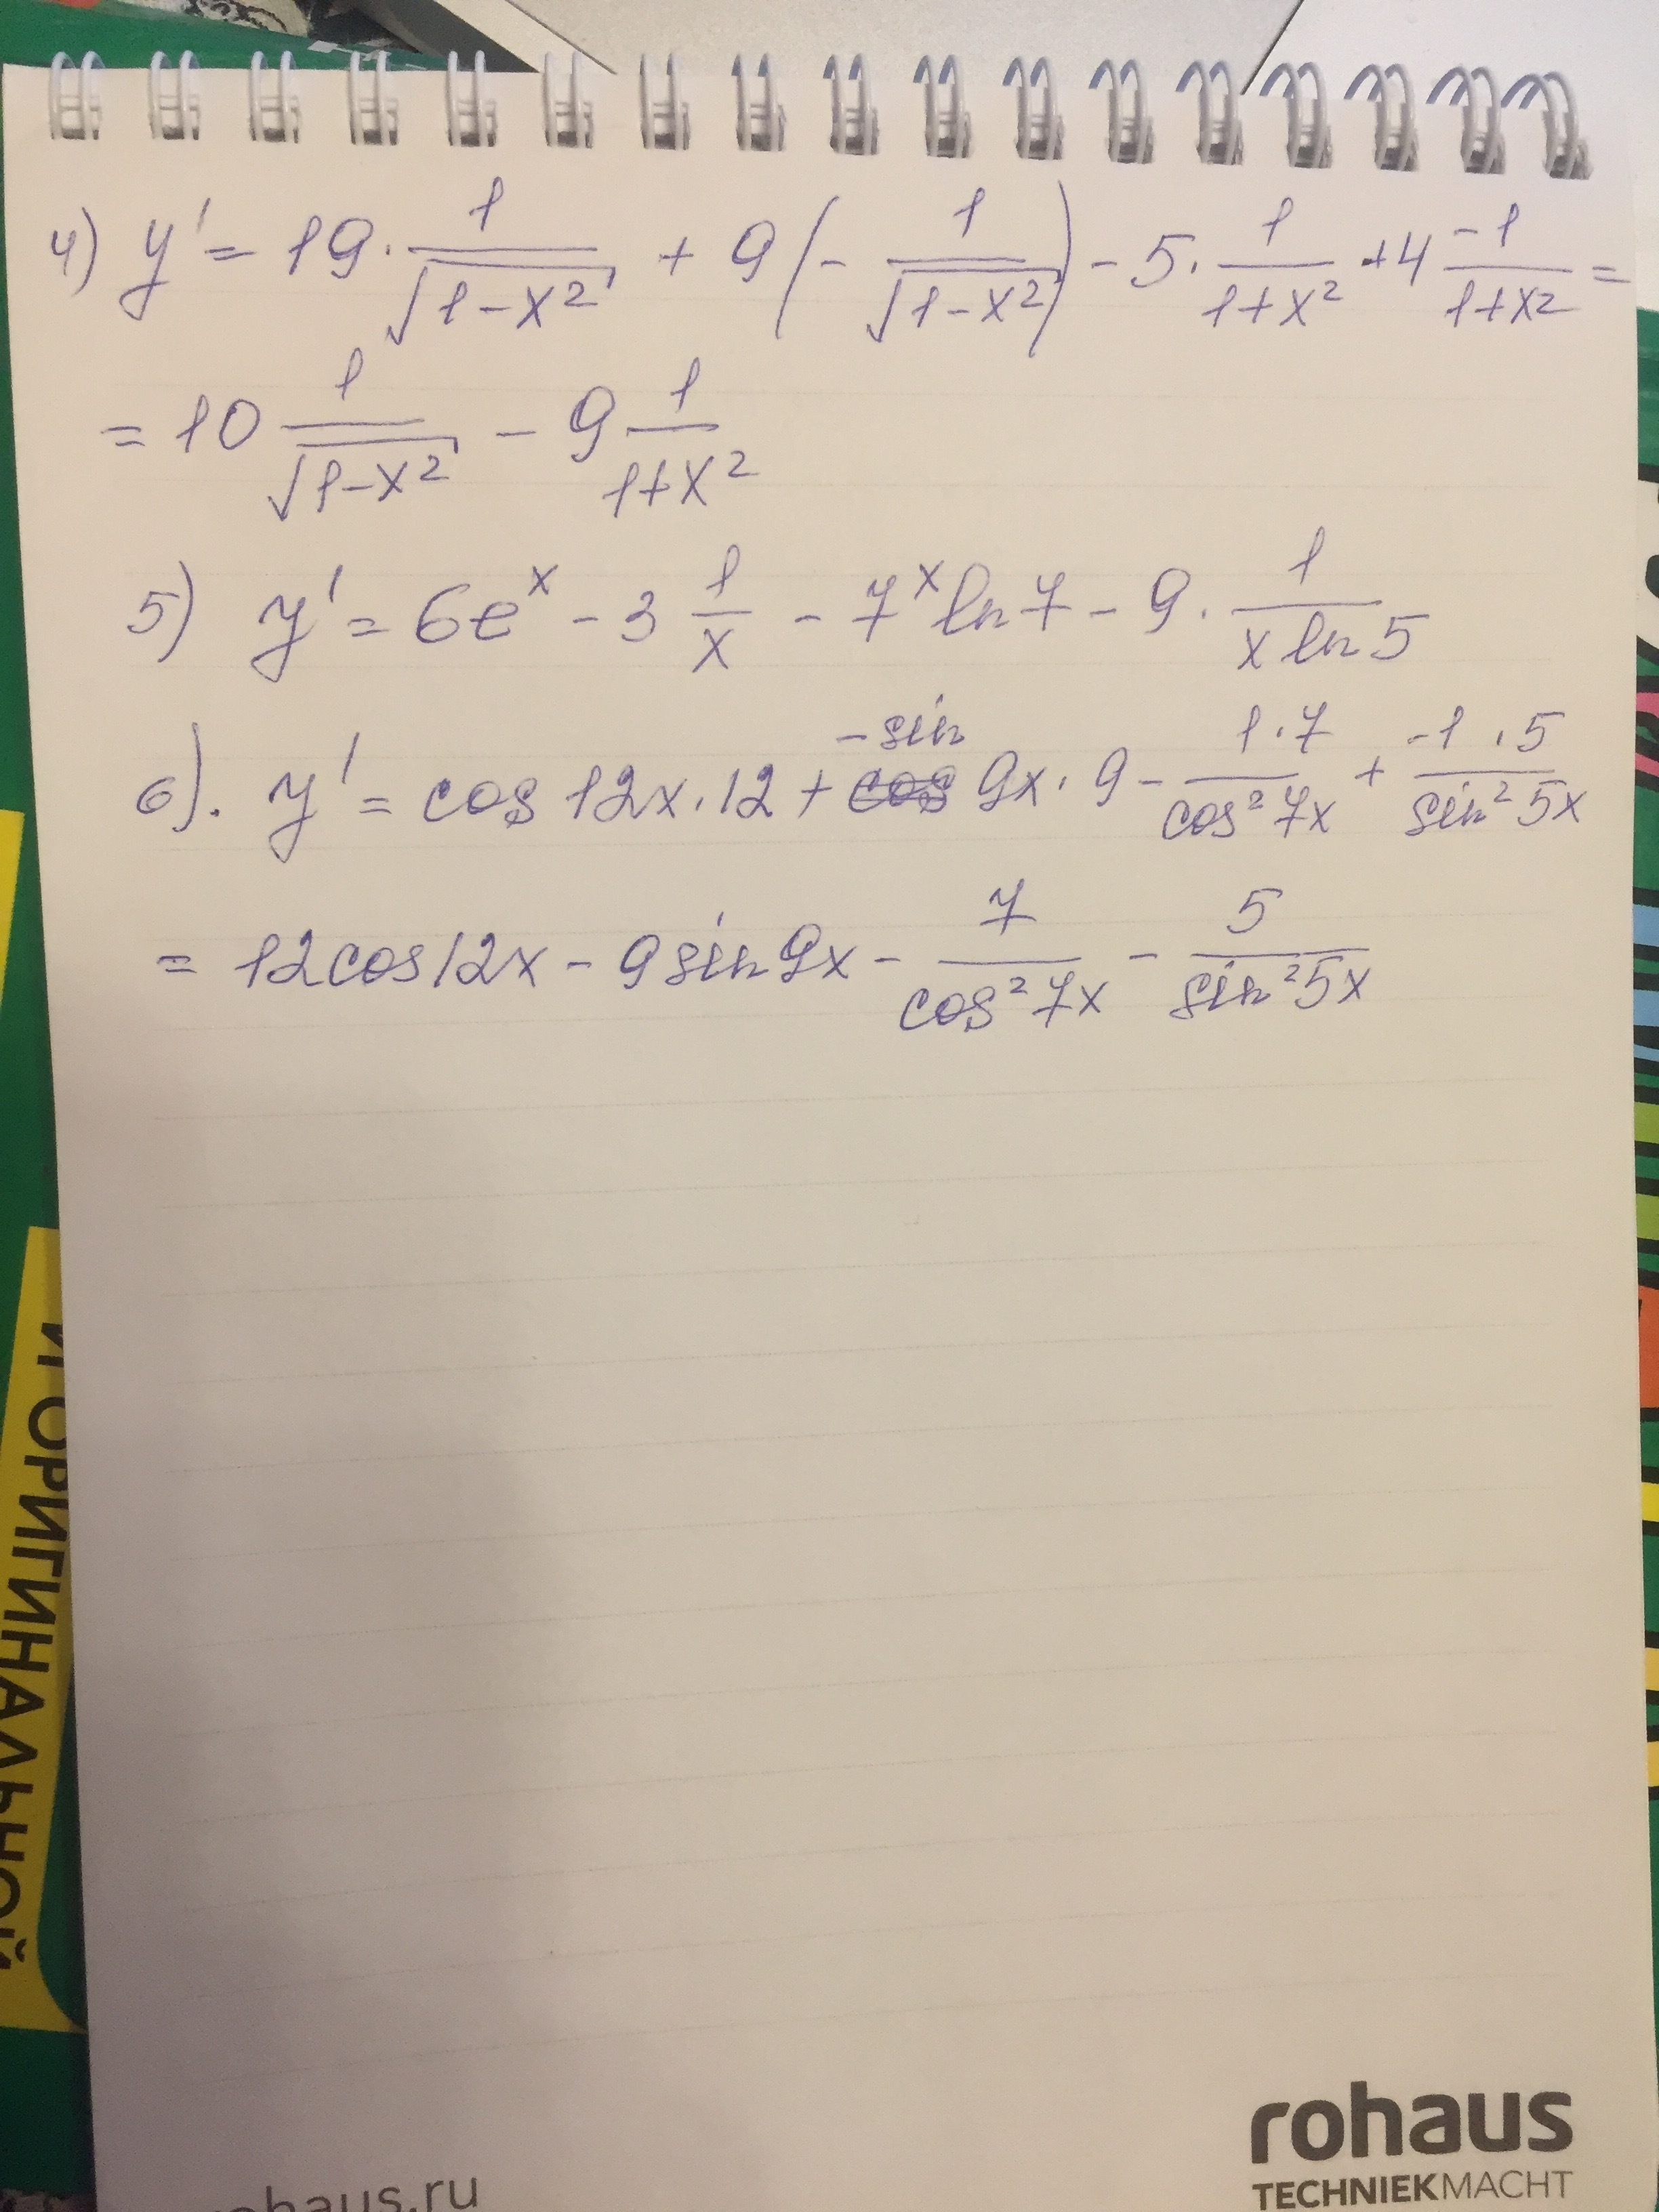 4) y' = 19 · 1/√(1-x²) + 9(- 1/√(1-x²)) - 5 · 1/(1+x²) + 4 -1/(1+x²) =
= 10 1/√(1-x²) - 9 1/(1+x²)
5) y' = 6eˣ - 3 1/x - 7ˣ ln 7 - 9 · 1/(x ln 5)
6). y' = cos 12x · 12 + -sin 9x · 9 - 1·7/cos² 7x + -1·5/sin² 5x
= 12cos12x - 9sin9x - 7/cos² 7x - 5/sin² 5x
И ОРИГИНАЛЬНОЙ
rohaus
TECHNIEKMACHT
rohaus.ru